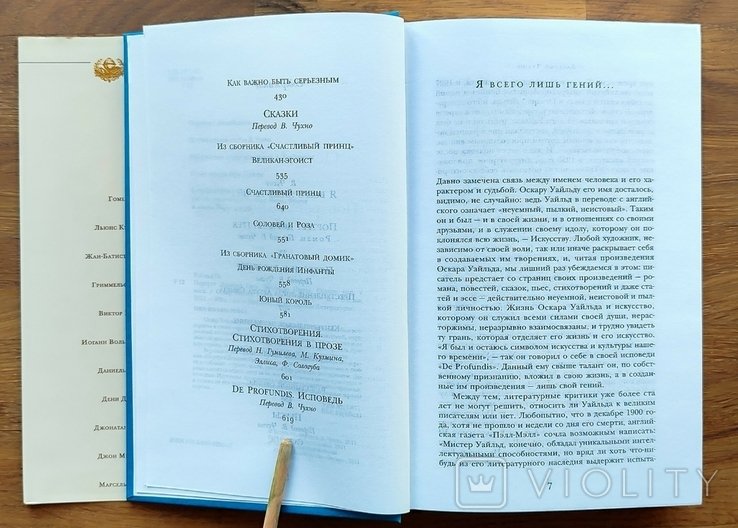 Гоме
Льюис К
Жан-Батист
Гриммельс
Виктор
Иоганн Воль
Даниель
Дени Д
Джонатан
Джон М
Марсель
Как важно быть серьезным
430
Сказки
Перевод В. Чухно
Из сборника «Счастливый принц»
Великан-эгоист
535
Счастливый принц
640
Соловей и Роза
551
Из сборника «Гранатовый домик»
День рождения Инфанты
558
Юный король
581
Стихотворения.
Стихотворения в прозе
Перевод Н. Гумилева, М. Кузмина,
Эллиса, Ф. Сологуба
601
De Profundis. Исповедь
Перевод В. Чухно
619
Я всего лишь гений...
Давно замечена связь между именем человека и его ха-
рактером и судьбой. Оскару Уайльду его имя досталось,
видимо, не случайно: ведь Уайльд в переводе с англий-
ского означает «неуемный, пылкий, неистовый». Таким
он и был – и в своей жизни, и в отношениях со своими
друзьями, и в служении своему идолу, которому он по-
клонялся всю жизнь, – Искусству. Любой художник, не-
зависимо от своей воли, так или иначе раскрывает себя
в создаваемых им творениях, и, читая произведения
Оскара Уайльда, мы лишний раз убеждаемся в этом: пи-
сатель предстает со страниц своих произведений – ро-
мана, повестей, сказок, пьес, стихотворений и даже ста-
тей и эссе – действительно неуемной, неистовой и пыл-
кой личностью. Жизнь Оскара Уайльда и искусство,
которому он служил всеми силами своей души, нерас-
торжимы, неразрывно взаимосвязаны, и трудно увидеть
ту грань, которая отделяет его жизнь и его искусство.
«Я был и остаюсь символом искусства и культуры наше-
го времени», – так он говорил о себе в своей исповеди
«De Profundis». Данный ему свыше талант он, по собст-
венному признанию, вложил в свою жизнь, а в создан-
ные им произведения – лишь свой гений.
Между тем, литературные критики уже более ста
лет не могут решить, относить ли Уайльда к великим
писателям или нет. Любопытно, что в декабре 1900 го-
да, хотя не прошло и недели со дня его смерти, англий-
ская газета «Пэлл-Мэлл» сочла возможным написать:
«Мистер Уайльд, конечно, обладал уникальными интел-
лектуальными способностями, но вряд ли хоть что-ни-
будь из его литературного наследия выдержит испыта-
7
VIOLITY